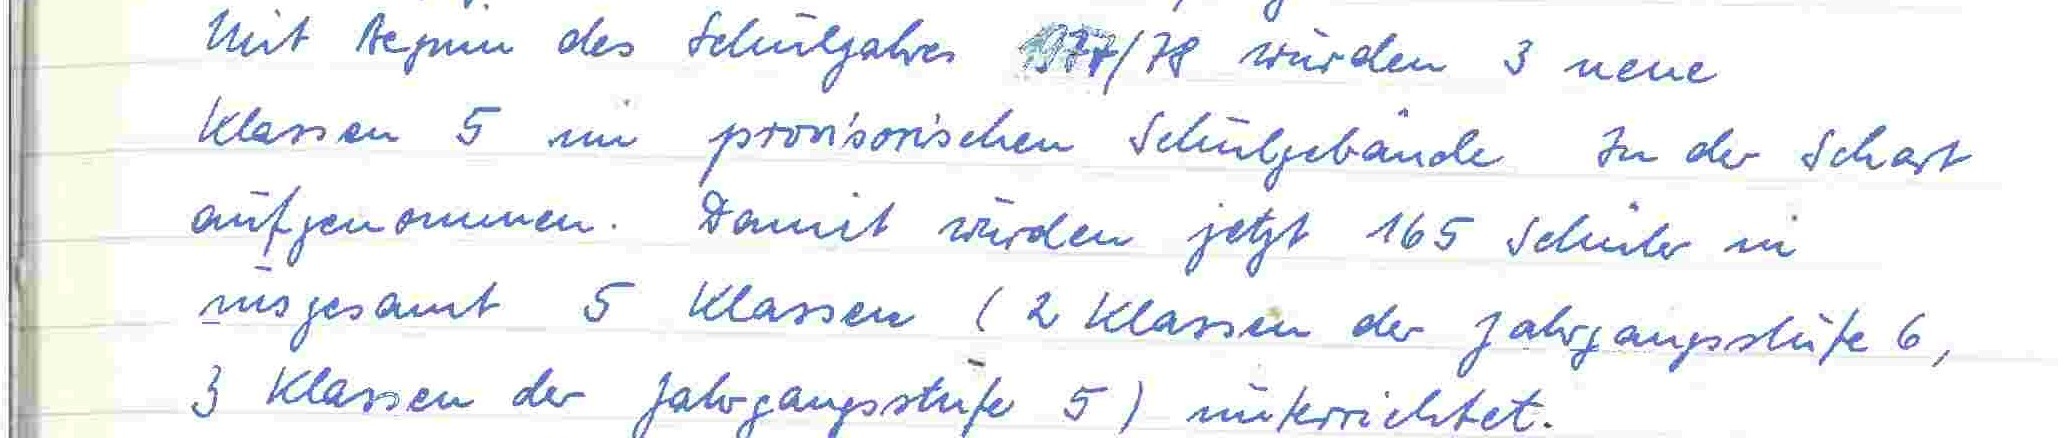 Mit Beginn des Schuljahres 1977/78 wurden 3 neue
Klassen 5 im provisorischen Schulgebäude In der Schart
aufgenommen. Damit wurden jetzt 165 Schüler in
insgesamt 5 Klassen (2 Klassen der Jahrgangsstufe 6,
3 Klassen der Jahrgangsstufe 5) unterrichtet.